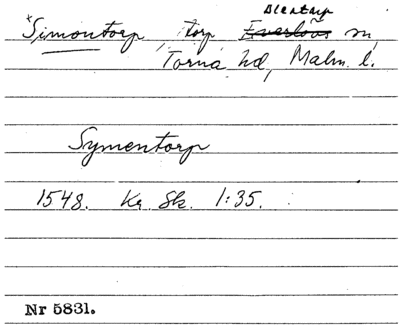 Blentarp
*Simontorp, torp Everlövs sn,
Torna hd, Malm. l.
Symentorp
1548. Kr. Sk. 1:35.
Nr 5831.